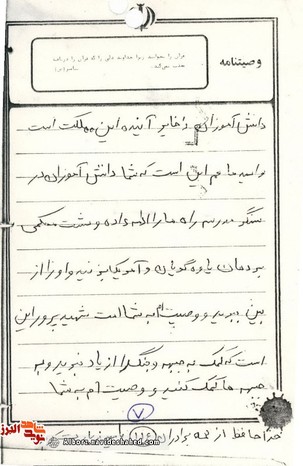 وصیتنامه
قرآن را بخوانید زیرا خداوند دلی را که قرآن را دریافته
عذاب نمی‌کند.
دانش آموزان ذخایر آینده این مملکت است
و امید ما هم این است که شما دانش آموزان در
سنگر مدرسه راه ما را ادامه داده و مشت محکمی
بر دهان یاوه گویان و آمریکا بزنید و او را از
بین ببرید و وصیتم به شما امت شهید پرور این
است که کمک به جبهه و جنگ را از یاد نبرید و به
جبهه ها کمک کنید و وصیت ام به شما
۷
خدا حافظ از همه برادران
Alborz.navideshahed.com
نوید شاهد
البرز